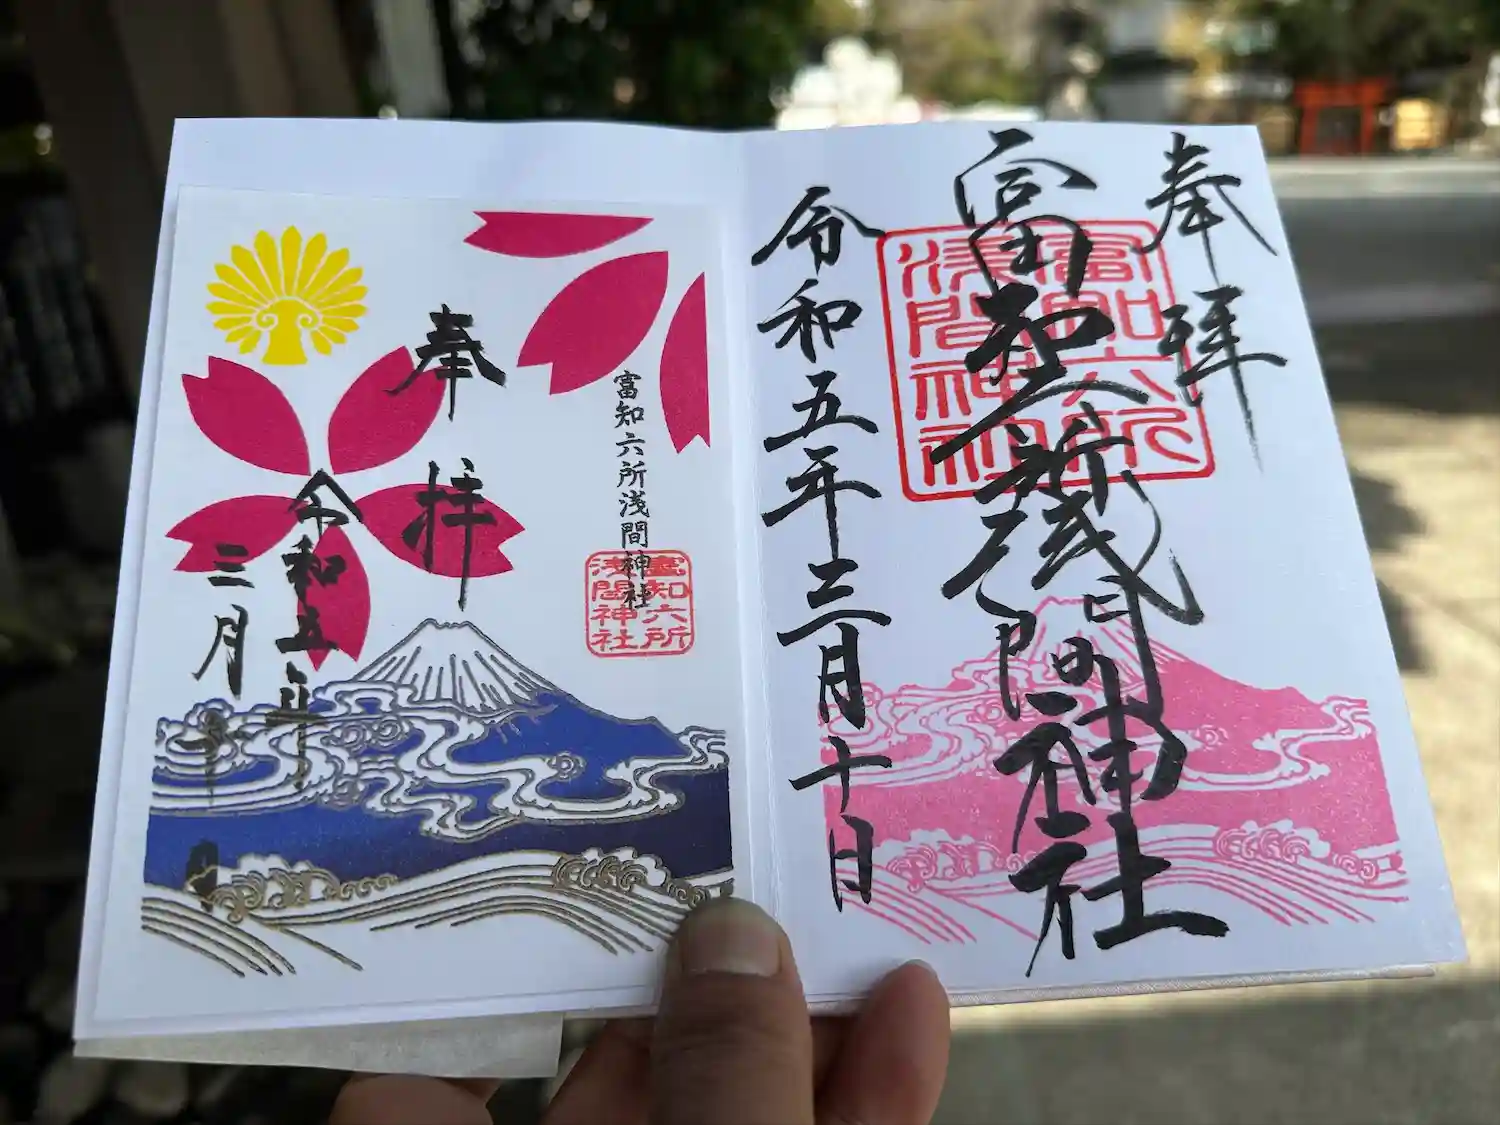 奉拝
富知六所浅間神社
富知六所
浅間神社
令和五年三月十日
奉拝
富知六所浅間神社
富知六所
浅間神社
令和五年
三月十日